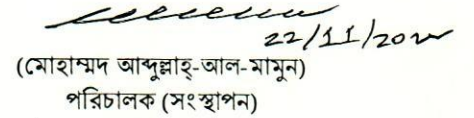 22/11/20
(মোহাম্মদ আব্দুল্লাহ্-আল-মামুন)
পরিচালক (সংস্থাপন)